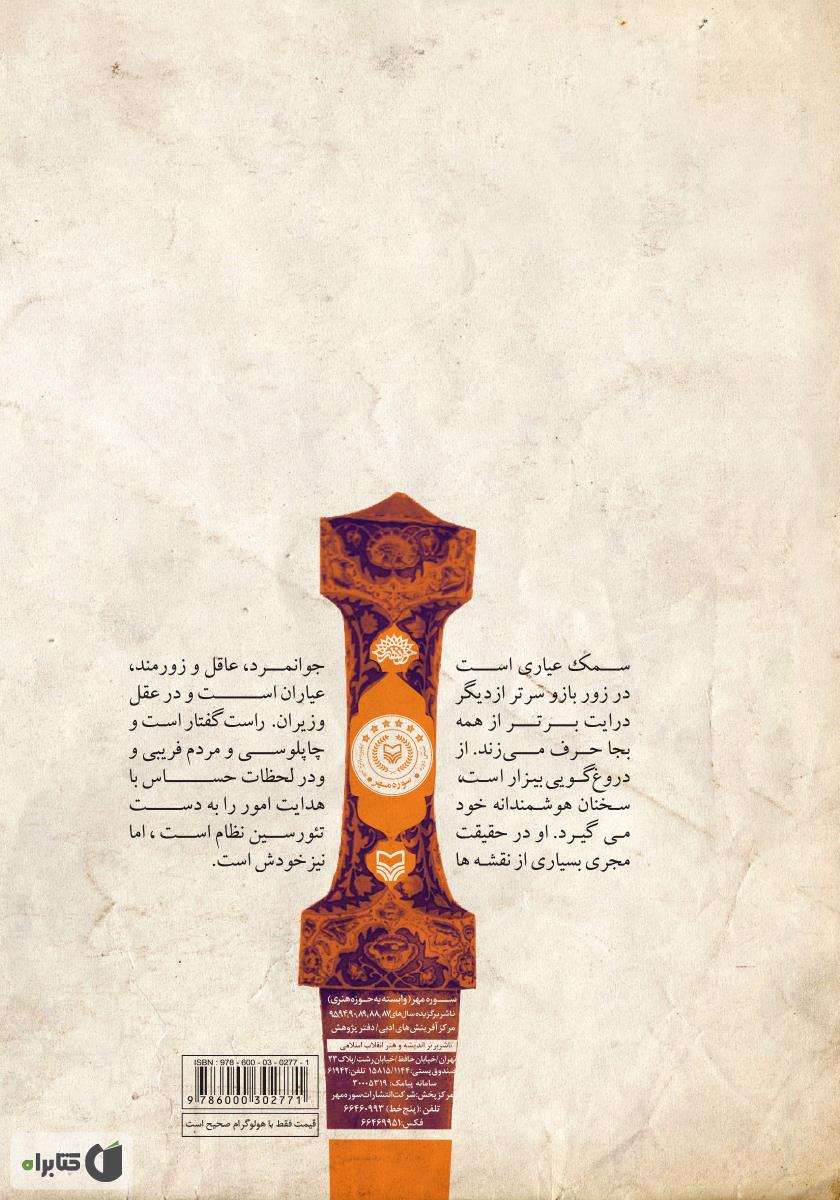 سمک عیاری است جوانمرد، عاقل و زورمند،
در زور بازو سرتر ازدیگر عیاران است و در عقل
درایت برتر از همه وزیران. راست‌گفتار است و
بجا حرف می‌زند. از چاپلوسی و مردم فریبی و
دروغ‌گویی بیزار است، ودر لحظات حساس با
سخنان هوشمندانه خود هدایت امور را به دست
می گیرد. او در حقیقت تئورسین نظام است ، اما
مجری بسیاری از نقشه ها نیزخودش است.
سوره مهر
سوره مهر (وابسته به حوزه هنری)
ناشر برگزیده سال‌های ۸۷، ۸۸، ۸۹، ۹۰، ۹۴، ۹۵
مرکز آفرینش‌های ادبی / دفتر پژوهش
ناشر برتر اندیشه و هنر انقلاب اسلامی
تهران/خیابان حافظ/خیابان رشت/پلاک ۲۳
صندوق پستی: ۱۵۸۱۵/۱۱۴۴ تلفن: ۶۱۹۴۲
سامانه پیامک: ۳۰۰۰۵۳۱۹
مرکز پخش: شرکت انتشارات سوره مهر
تلفن: (پنج خط) ۶۶۴۶۰۹۹۳
فکس: ۶۶۴۶۹۹۵۱
ISBN : 978 - 600 - 03 - 0277 - 1
9 786000 302771
قیمت فقط با هولوگرام صحیح است
کتابراه